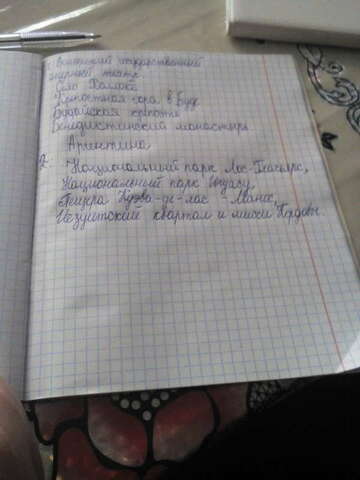 Венгерский государственный
оперный театр.
Село Холлокё
Крепостная гора в Буде
Будайская крепость
Бенедиктинский монастырь
Аргентина
2. Национальный парк Лос-Гласьярес,
Национальный парк Игуасу,
Пещера Куэва-де-лас-Манос,
Иезуитский квартал и миссии Кордовы.